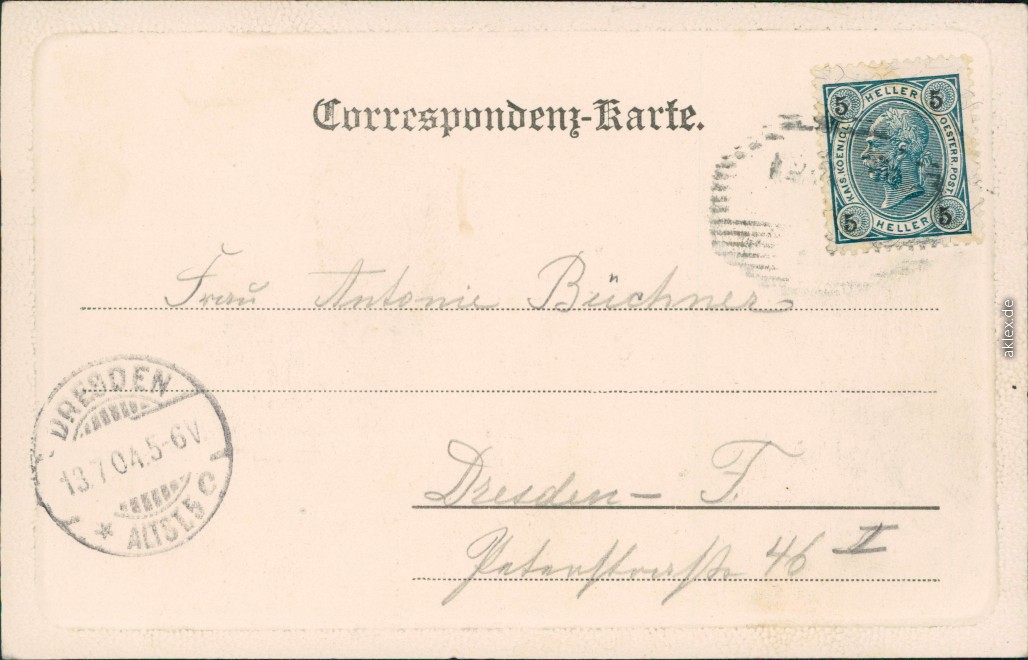 Correspondenz-Karte.
5 HELLER 5
KAIS. KOENIGL. OESTERR. POST
5 HELLER 5
Frau Antonie Büchner
DRESDEN
13.7.04.5-6V
* ALTST. 5 c
Dresden – F.
Peterstraße 46 II
aklex.de